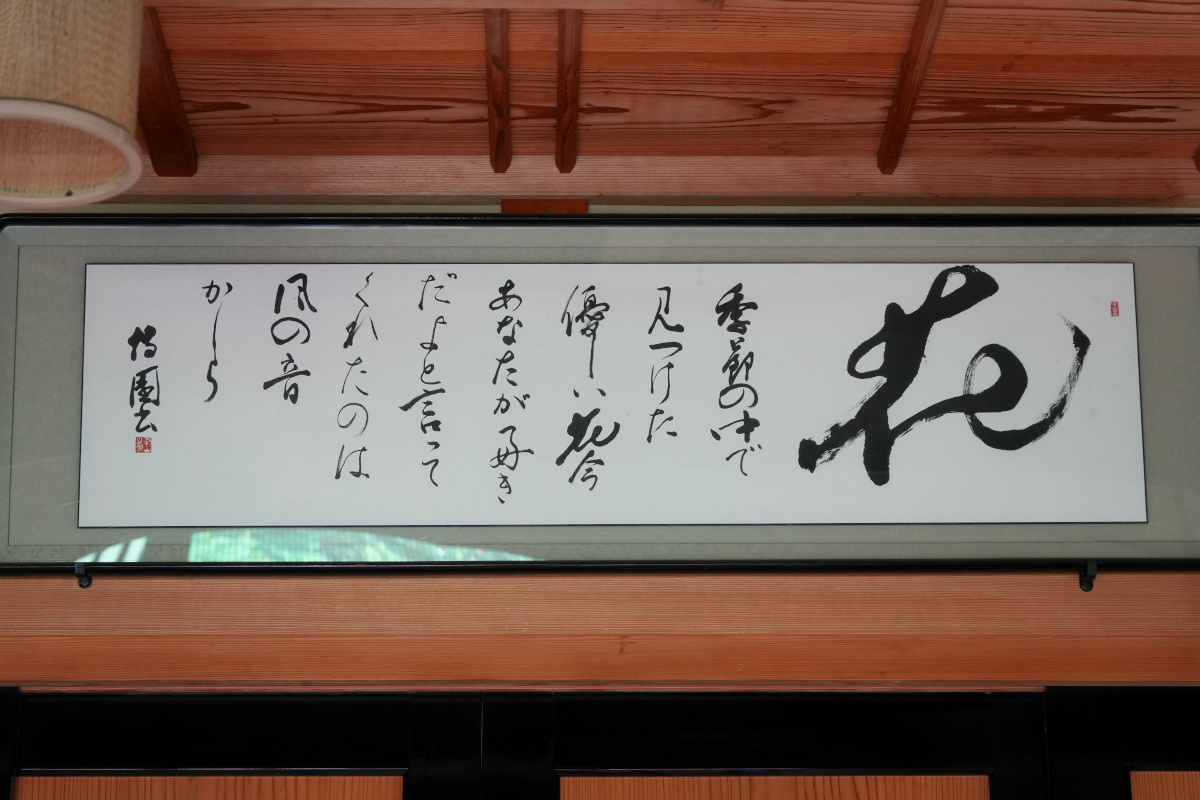 花
季節の中で
見つけた
優しい花今
あなたが好き
だよと言って
くれたのは
風の音
かしら